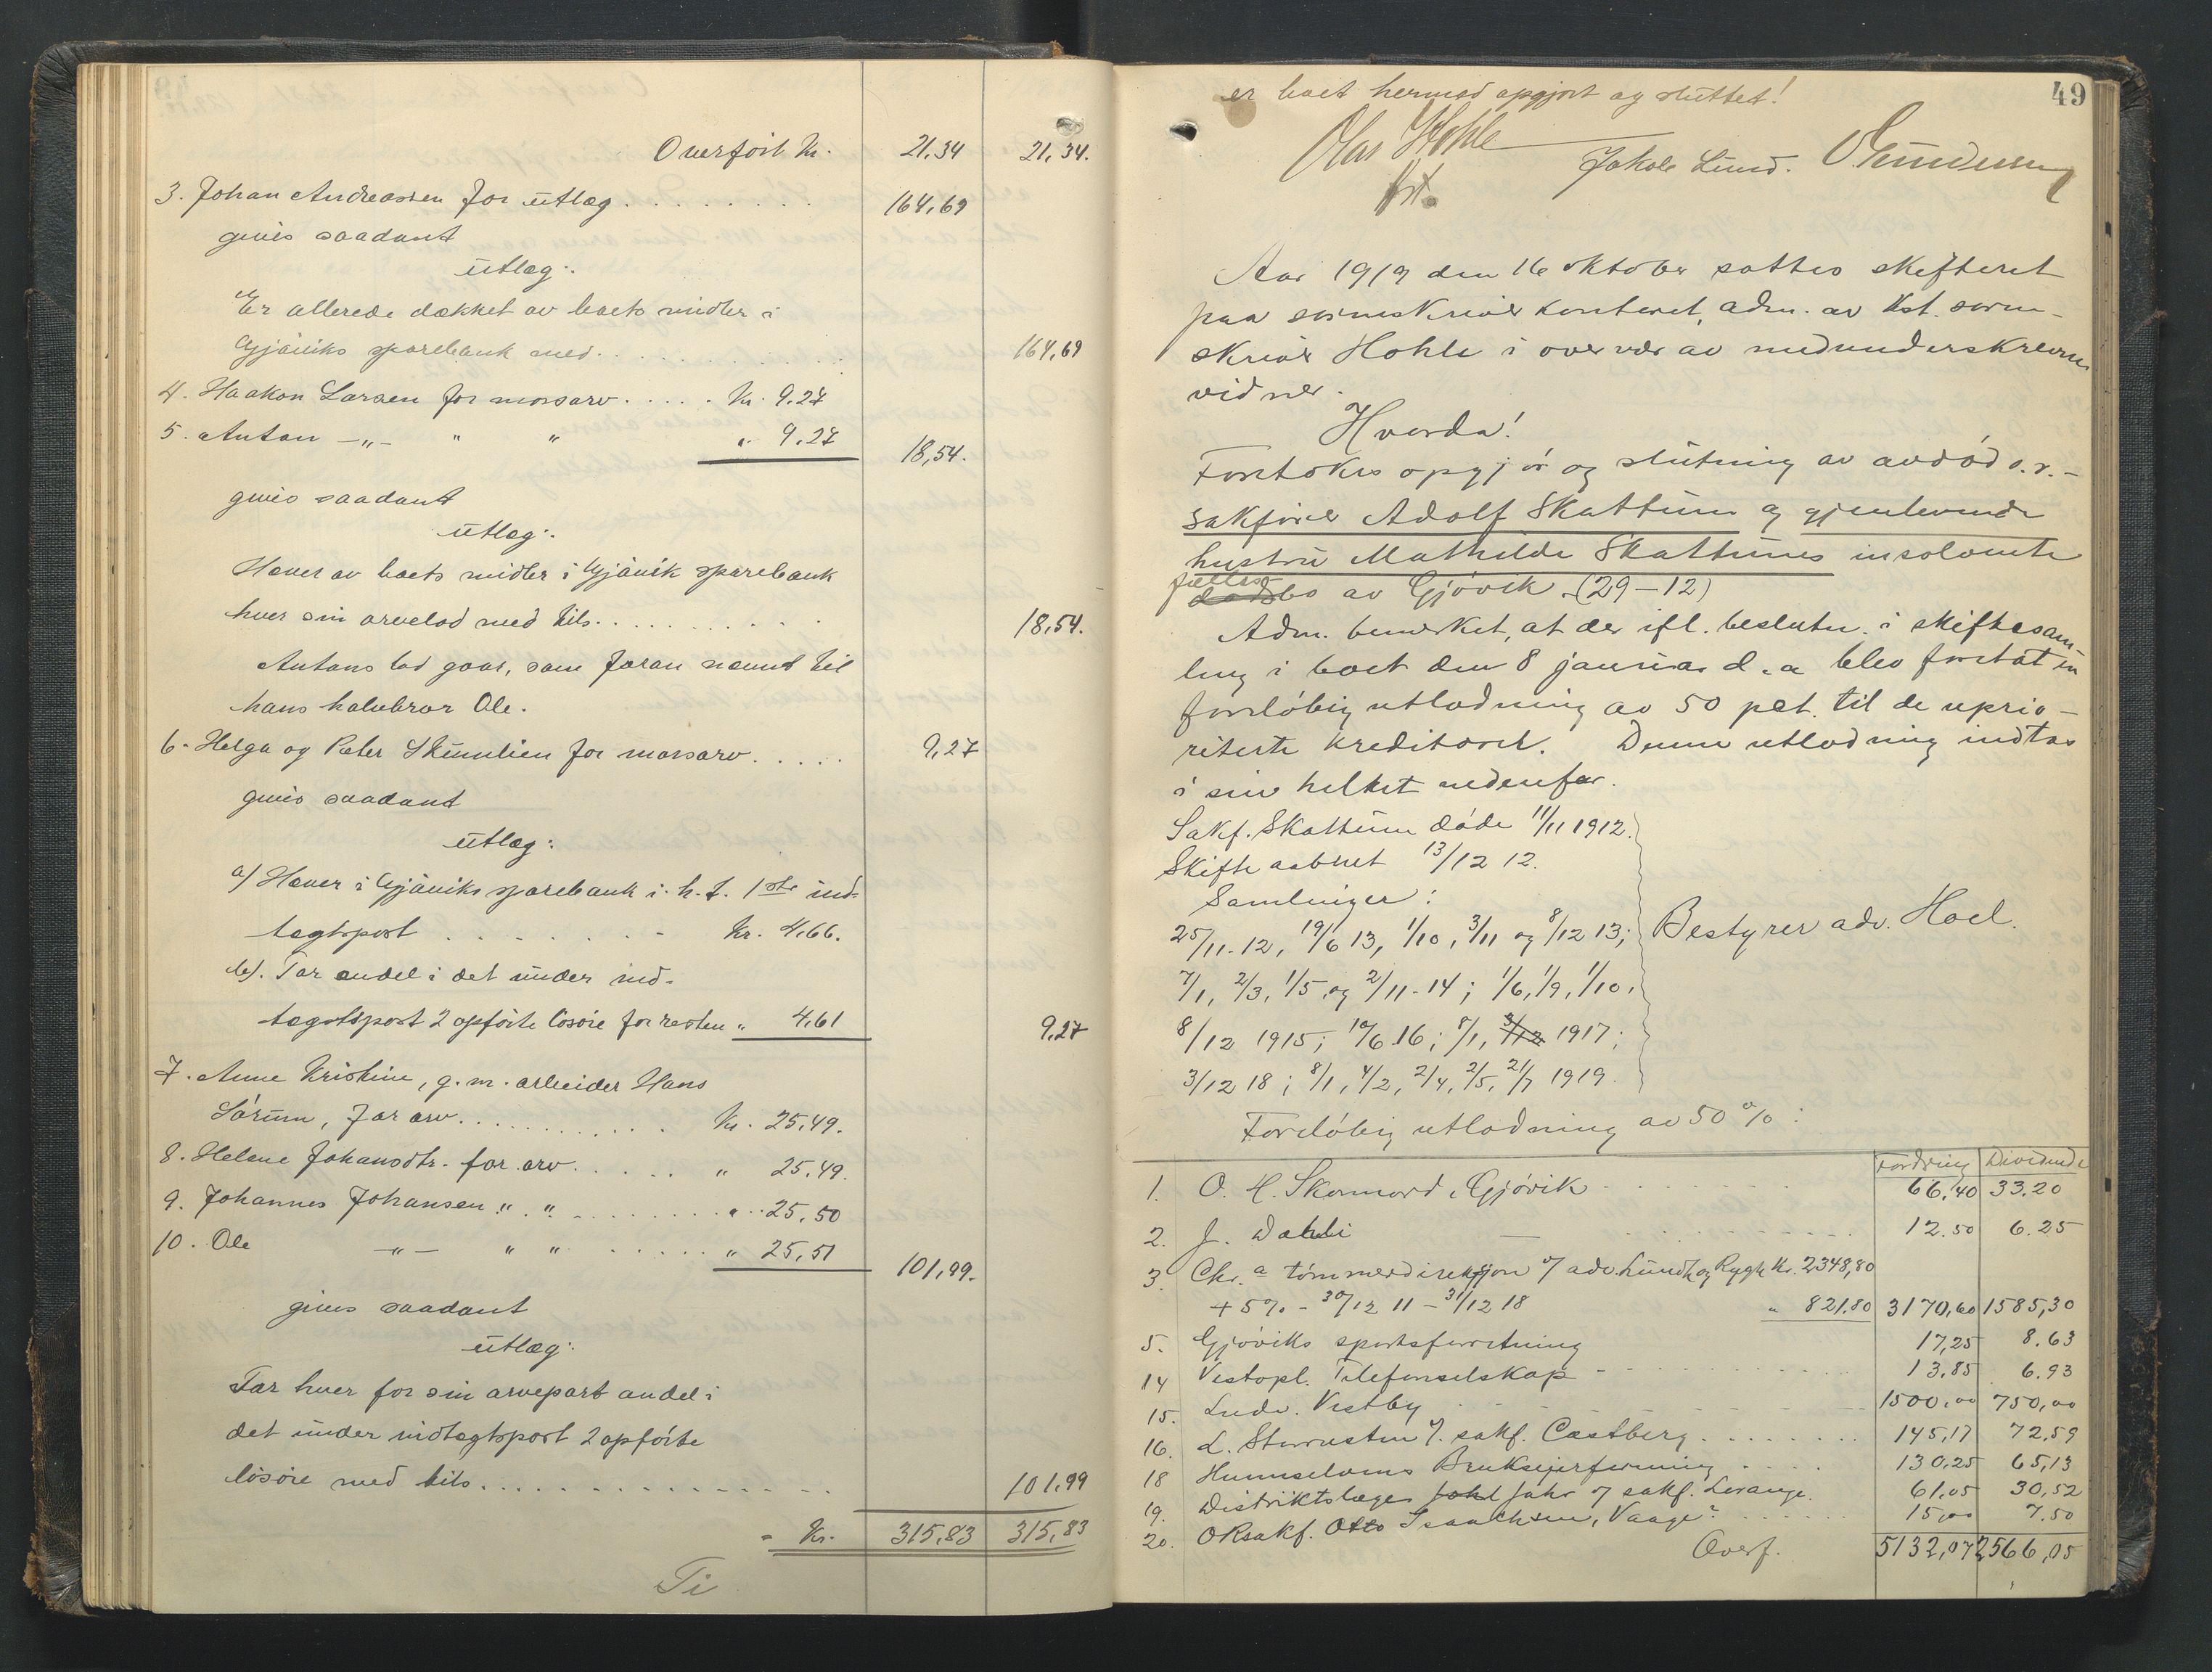 Overført Kr. 21,34 21,34.
3. Johan Andreassen for utlæg . . . . . . . . 164,69
givis saadant
utlæg:
Er allerede dækket av boets midler i
Gjøviks sparebank med . . . . . . . . 164,69
4. Haakon Larsen for morsarv . . . . . Kr. 9.27
5. Anton —„— „ „ „ 9.27 18,54.
givis saadant
utlæg:
Hæver av boets midler i Gjøvik sparebank
hver sin arvelod med tils. . . . . . . . . 18,54.
Antons lod gaar, som foran nævnt til
hans halvbror Ole.
6. Helga og Peter Skumlien for morsarv . . . . . 9,27
givis saadant
utlæg:
a) Hæver i Gjøviks sparebank i. h. t. 1ste ind-
tægtspost . . . . . . . Kr. 4,66.
b). Tar andel i det under ind-
tægtspost 2 opførte løsøre for resten „ 4,61 9,27
7. Anne Kristine, g. m. arbeider Hans
Sørum, for arv . . . . . . . . . . Kr. 25,49.
8. Helene Johansdtr. for arv . . . . . „ 25,49.
9. Johannes Johansen „ „ . . . . . . . „ 25,50
10. Ole —„— „ „ . . . . . . „ 25,51 101,99.
givis saadant
utlæg:
Tar hver for sin arvepart andel i
det under indtægtspost 2 opførte
løsøre med tils. . . . . . . . . . . . . 101,99
= Kr. 315,83 315,83
Ti
49
er boet hermed opgjort og sluttet!
Olas Hohle
kst.
Jakob Lund. O. Gundersen
Aar 1919 den 16 oktober sattes skifteret
paa sorenskriverkontoret, adm. av kst. soren-
skriver Hohle i overvær av medunderskrevne
vidner.
Hvorda!
Foretokes opgjør og slutning av avdød o.r.-
sakfører Adolf Skattum og gjenlevende
hustru Mathilde Skattums insolvente
fælles
dødsbo av Gjøvik. (29-12)
Adm. bemerket, at der ifl. beslutn. i skiftesam-
ling i boet den 8 januar d. a blev foretat en
foreløbig utlodning av 50 pct. til de uprio-
riterte kreditorer. Denne utlodning indtas
i sin helhet nedenfor.
Sakf. Skattum døde 11/11 1912.
Skifte aabnet 13/12 12.
Samlinger:
25/11-12, 19/6 13, 1/10, 3/11 og 8/12 13; Bestyrer adv. Hoel.
7/1, 2/3, 1/5 og 2/11-14; 1/6, 1/9, 1/10,
8/12 1915; 10/6 16; 8/1, 3/12 1917;
3/12 18; 8/1, 4/2, 2/4, 2/5, 21/7 1919.
Foreløbig utlodning av 50 %:
Fordring Dividende
1. O. H. Skonnord, Gjøvik . . . . . . . 66,40 33.20
2. J. Dæhli — . . . . . . . 12.50 6.25
3. Chr.a tømmerdireksjon v/ adv. Lundh og Rygh Kr. 2348,80
+ 5% - 30/12 11 - 31/12 18 „ 821.80 3170,60 1585,30
5. Gjøviks sportsforretning 17,25 8.63
14 Vestopl. Telefonselskap . . . . . . . 13,85 6.93
15. Ludv. Vestby . . . . . . . 1500,00 750,00
16. L. Stenersen v/. sakf. Castberg . . . . . . . 145,17 72,59
18 Hunnselvens Brukseierforening . . . . 130,25 65,13
19. Distriktslæge Johl Jahr v/ sakf. Levange. 61,05 30,52
20. ORsakf. Otto Isaachsen, Vaage? . . . . . . 15,00 7.50
Overf. 5132,07 2566,05